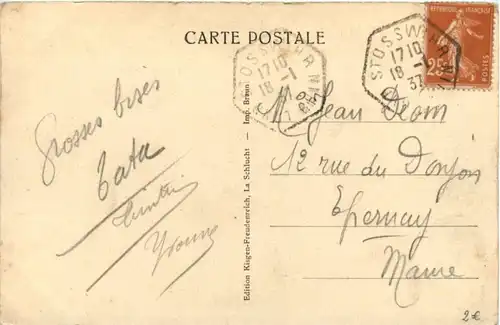 CARTE POSTALE
REPUBLIQUE FRANÇAISE
25c
POSTES
STOSSWIHR
17 10
18 - 1
37
STOSSWIHR
17 10
18 - 1
Grosses bises
Tata
Yvonne
Edition Kisgen-Freudenreich, La Schlucht — Imp. Braun
M. Jean
12 rue du Donjon
Epernay
Marne
2€